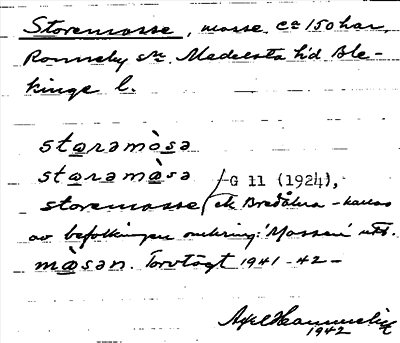 Storemosse, mosse ca 150 har,
Ronneby sn. Medelsta hd Ble-
kinge l.
starəmòsə
starəmàsə
G 11 (1924),
storemosse ek Bredåkra - kallas
av befolkningen omkring: 'Mossen' utt.
mɑ̀sən. Torvtägt 1941-42-
Axel
1942